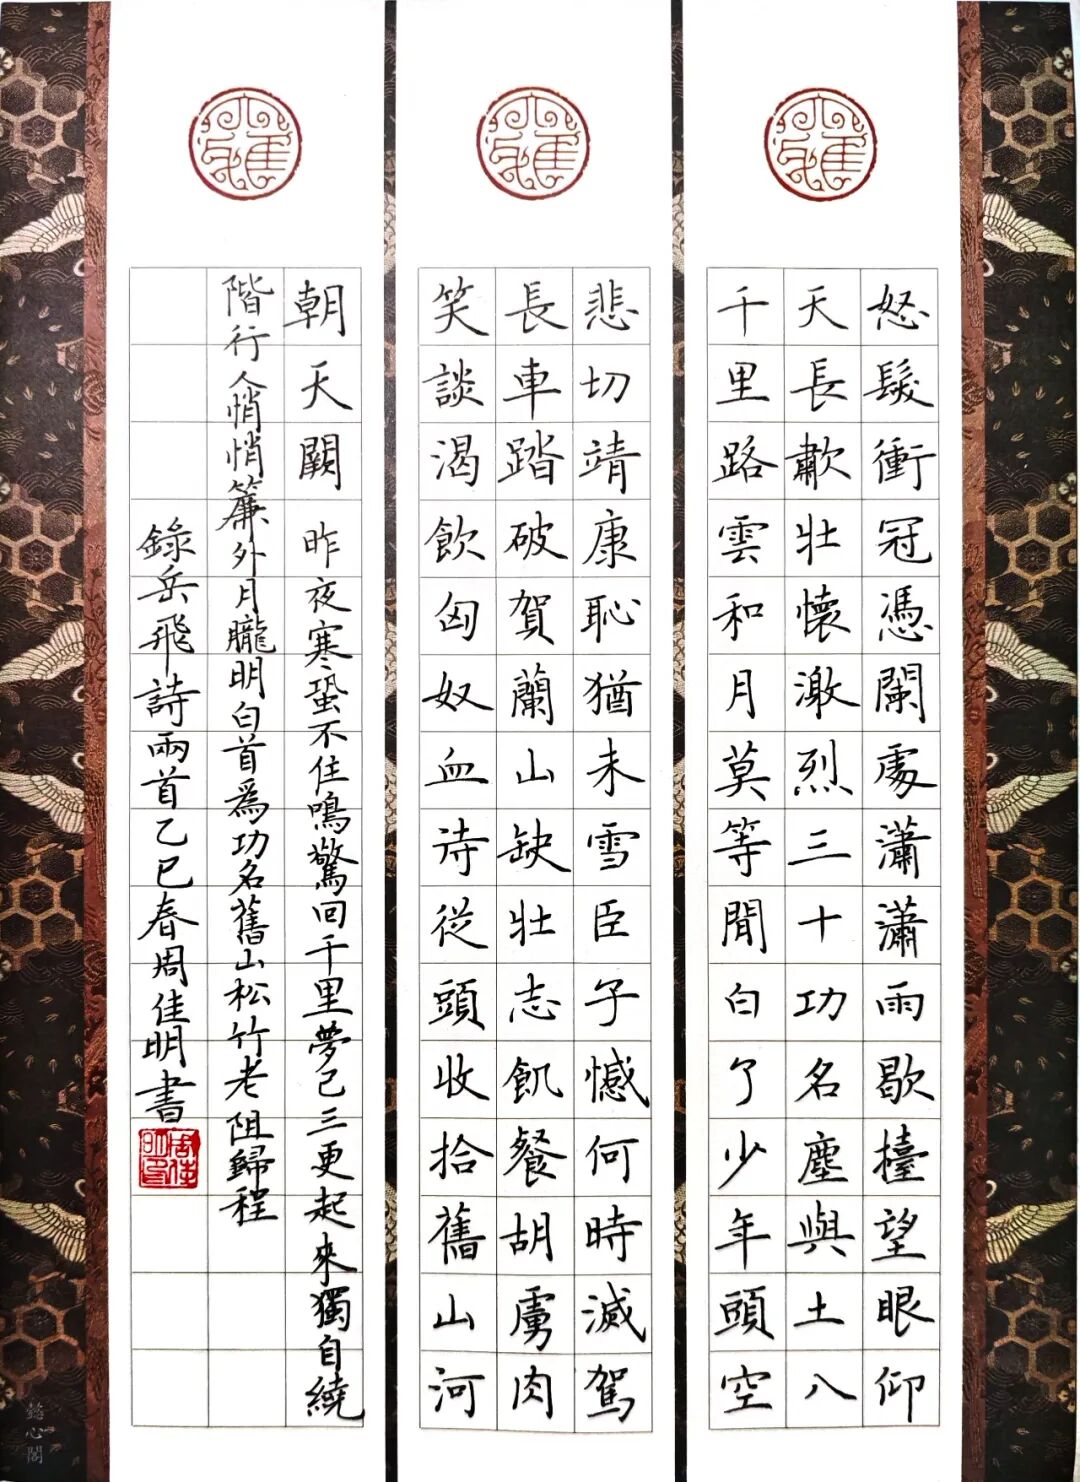 怒髮衝冠憑闌處瀟瀟雨歇擡望眼仰
天長歗壯懷激烈三十功名塵與土八
千里路雲和月莫等閒白了少年頭空
悲切靖康恥猶未雪臣子憾何時滅駕
長車踏破賀蘭山缺壯志飢餐胡虜肉
笑談渴飲匈奴血待從頭收拾舊山河
朝天闕 昨夜寒蛩不住鳴驚回千里夢已三更起來獨自繞
階行人悄悄簾外月朧明白首爲功名舊山松竹老阻歸程
錄岳飛詩兩首乙巳春周佳明書
周佳明印
懿心閣